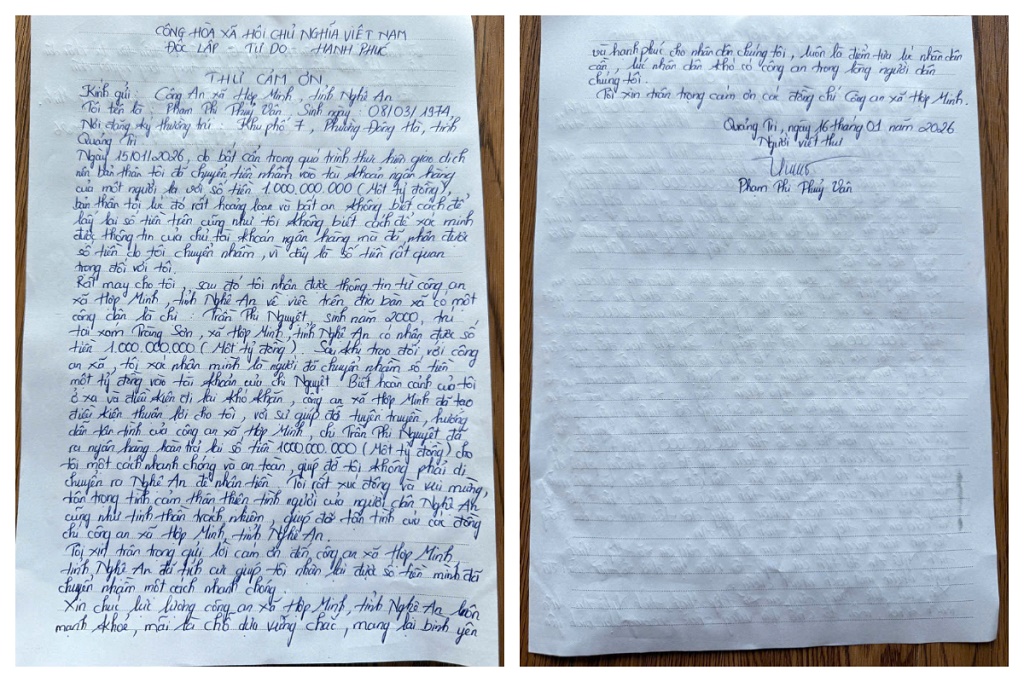 CÔNG HÒA XÃ HỘI CHỦ NGHĨA VIỆT NAM
ĐỘC LẬP - TỰ DO - HẠNH PHÚC
THƯ CẢM ƠN
Kính gửi : Công An xã Hợp Minh, tỉnh Nghệ An
Tôi tên là : Phạm Thị Thuỳ Vân. Sinh ngày : 08/03/1974
Nơi đăng ký thường trú : Khu phố 7, Phường Đông Hà, tỉnh
Quảng Trị
Ngày 15/01/2026, do bất cẩn trong quá trình thực hiện giao dịch
nên bản thân tôi đã chuyển tiền nhầm vào tài khoản ngân hàng
của một người lạ với số tiền 1.000.000.000 (Một tỷ đồng),
bản thân tôi lúc đó rất hoảng loạn và bất an không biết cách để
lấy lại số tiền trên cũng như tôi không biết cách để xác minh
được thông tin của chủ tài khoản ngân hàng mà đã nhận được
số tiền do tôi chuyển nhầm, vì đây là số tiền rất quan
trọng đối với tôi.
Rất may cho tôi, sau đó tôi nhận được thông tin từ công an
xã Hợp Minh, tỉnh Nghệ An về việc trên địa bàn xã có một
công dân là chị : Trần Thị Nguyệt, sinh năm 2000, trú
tại xóm Tràng Sơn, xã Hợp Minh, tỉnh Nghệ An có nhận được số
tiền 1.000.000.000 (Một tỷ đồng). Sau khi trao đổi với công
an xã, tôi xác nhận mình là người đã chuyển nhầm số tiền
một tỷ đồng vào tài khoản của chị Nguyệt. Biết hoàn cảnh của tôi
ở xa và điều kiện đi lại khó khăn, công an xã Hợp Minh đã tạo
điều kiện thuận lợi cho tôi, với sự giúp đỡ tuyên truyền, hướng
dẫn tận tình của công an xã Hợp Minh, chị Trần Thị Nguyệt đã
ra ngân hàng hoàn trả lại số tiền 1000.000.000 (Một tỷ đồng) cho
tôi một cách nhanh chóng và an toàn, giúp đỡ tôi không phải di
chuyển ra Nghệ An để nhận tiền. Tôi rất xúc động và vui mừng,
trân trọng tình cảm thân thiện tình người của người dân Nghệ An
cũng như tinh thần trách nhiệm, giúp đỡ tận tình của các đồng
chí công an xã Hợp Minh, tỉnh Nghệ An.
Tôi xin trân trọng gửi lời cảm ơn đến công an xã Hợp Minh,
tỉnh Nghệ An đã tích cực giúp tôi nhận lại được số tiền mình đã
chuyển nhầm một cách nhanh chóng.
Xin chúc lực lượng công an xã Hợp Minh, tỉnh Nghệ An luôn
mạnh khoẻ, mãi là chỗ dựa vững chắc, mang lại bình yên
và hạnh phúc cho nhân dân chúng tôi, luôn là điểm tựu lúc nhân dân
cần, lúc nhân dân khó có công an trong lòng người dân
chúng tôi.
Tôi xin trân trọng cảm ơn các đồng chí Công an xã Hợp Minh.
Quảng Trị, ngày 16 tháng 01 năm 2026
Người viết thư
Phạm Thị Thuỳ Vân